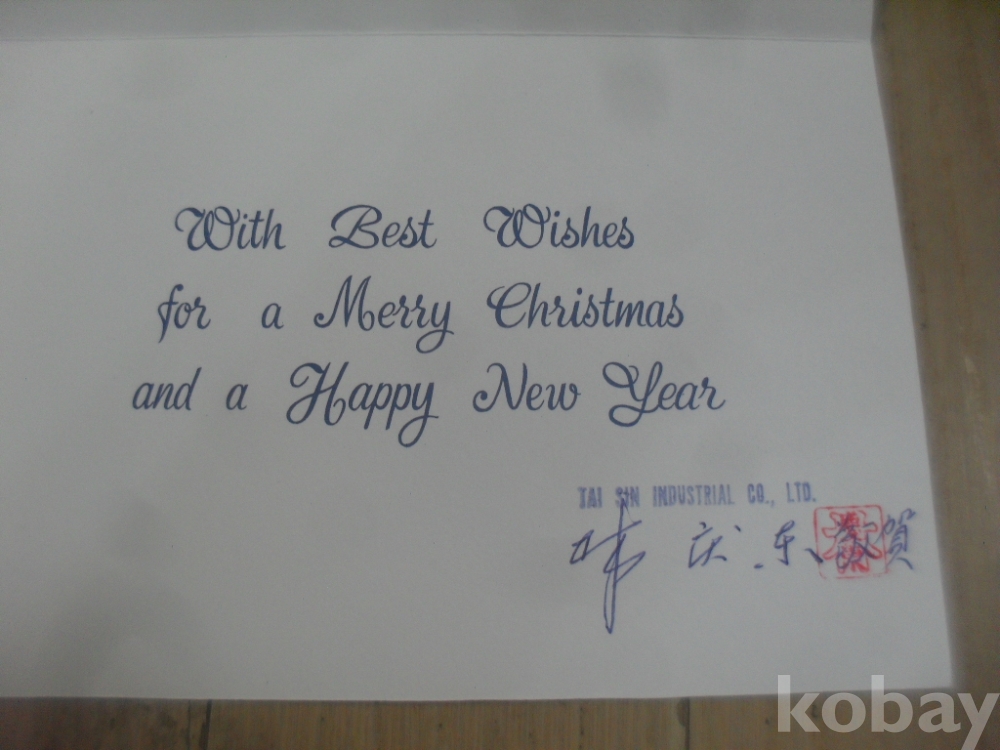 With Best Wishes
for a Merry Christmas
and a Happy New Year
TAI SIN INDUSTRIAL CO., LTD.
庆东 敬賀
kobay